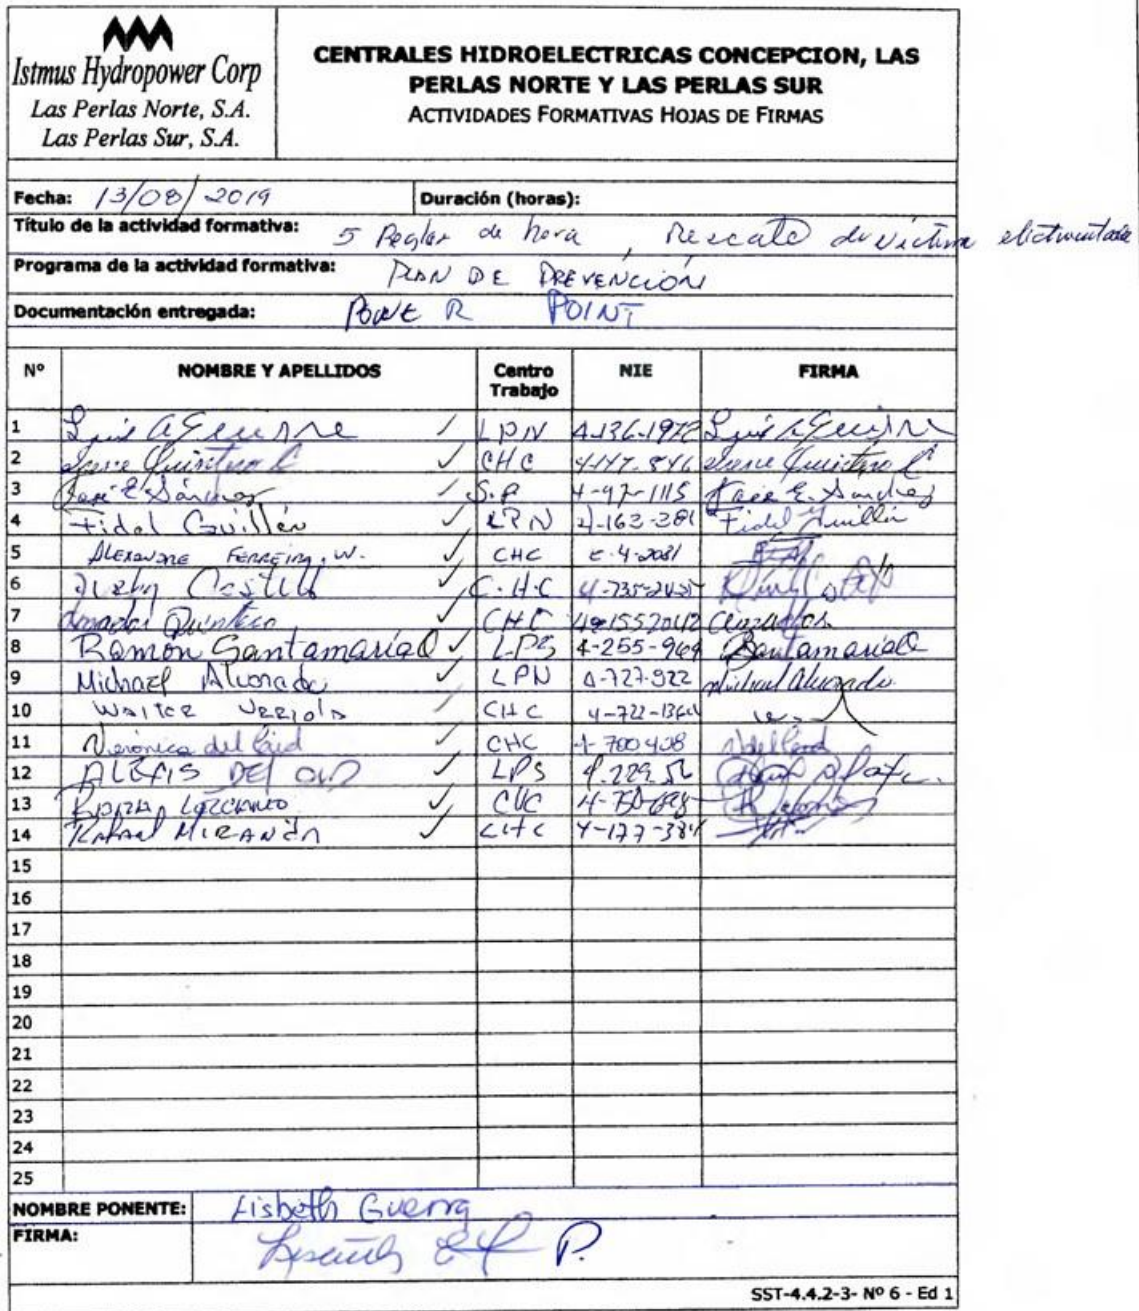 Istmus Hydropower Corp
Las Perlas Norte, S.A.
Las Perlas Sur, S.A.
CENTRALES HIDROELECTRICAS CONCEPCION, LAS
PERLAS NORTE Y LAS PERLAS SUR
ACTIVIDADES FORMATIVAS HOJAS DE FIRMAS
Fecha: 13/08/2019 Duración (horas):
Título de la actividad formativa: 5 Reglas de hora, Rescate de victima
Programa de la actividad formativa: PLAN DE PREVENCIÓN
Documentación entregada: POWER POINT
Nº NOMBRE Y APELLIDOS Centro Trabajo NIE FIRMA
1 Luis A Guerra ✓ LPN 4-136-1972
2 Quintero C ✓ CHC 4-147-846 Quintero C
3 José E. Sánchez ✓ S.P 4-97-1115 José E. Sánchez
4 Fidel Guillén ✓ LPN 4-162-281 Fidel Guillén
5 ALEXANDRE FERREIRA. W. ✓ CHC E-4-2081
6 Castillo ✓ C.H.C
7 Amador Quintero ✓ CHC Amador
8 Ramón Santamaría Q ✓ LPS 4-255-969 Santamaría Q
9 Michael Alvarado ✓ LPN 4-727-922 Michael Alvarado
10 WALTER ✓ CHC
11 Verónica del Cid ✓ CHC 4-700-408 VdelCid
12 ALEXIS DEL CID ✓ LPS
13 ✓ CHC
14 Rafael MIRANDA ✓ CHC 4-177-384
15
16
17
18
19
20
21
22
23
24
25
NOMBRE PONENTE: Lisbeth Guerra
FIRMA:
SST-4.4.2-3- Nº 6 - Ed 1